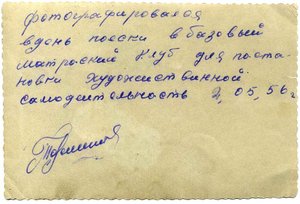 фотографировался
вдень поески в базовый
матроский Клуб для поста-
новки художиственной
самодеительность 2, 05, 56 г.